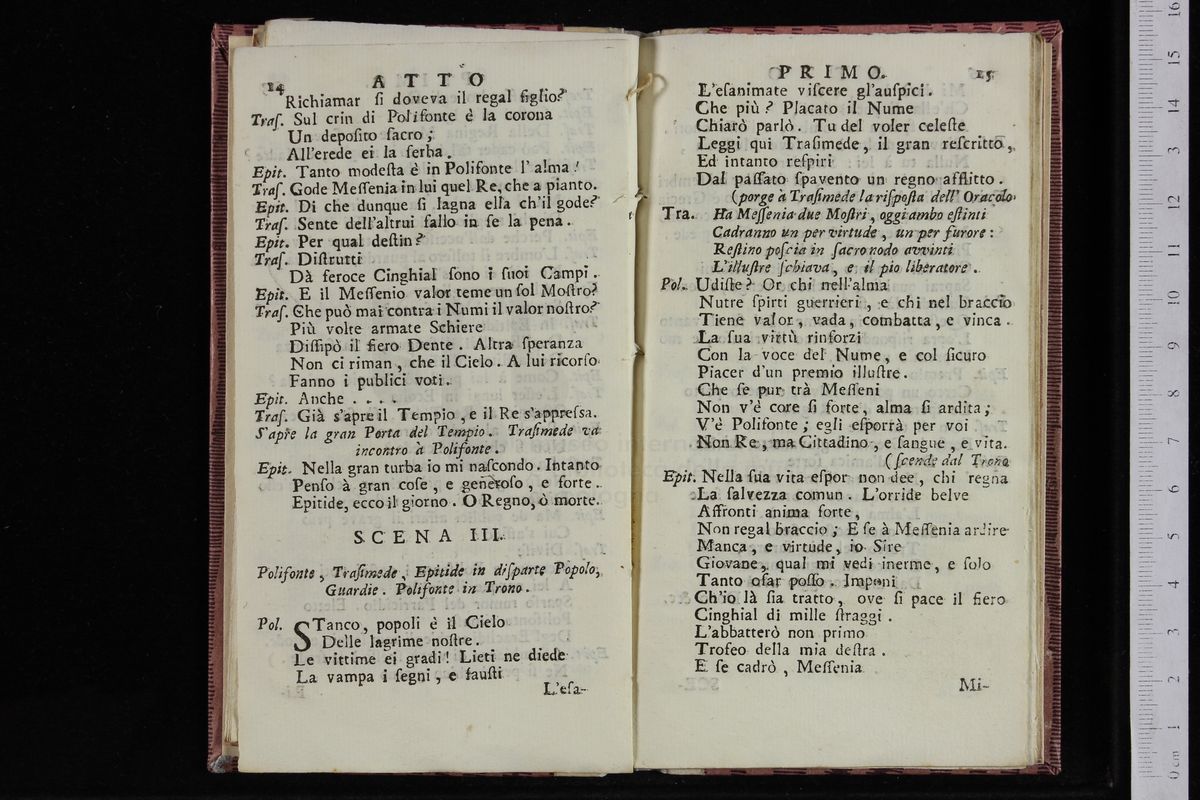 14 ATTO
Richiamar ſi doveva il regal figlio?
Traſ. Sul crin di Polifonte è la corona
Un depoſito ſacro;
All'erede ei la ſerba.
Epit. Tanto modeſta è in Polifonte l'alma!
Traſ. Gode Meſſenia in lui quel Re, che a pianto.
Epit. Di che dunque ſi lagna ella ch'il gode?
Traſ. Sente dell'altrui fallo in ſe la pena.
Epit. Per qual deſtin?
Traſ. Diſtrutti
Dà feroce Cinghial ſono i ſuoi Campi.
Epit. E il Meſſenio valor teme un ſol Moſtro?
Traſ. Che può mai contra i Numi il valor noſtro?
Più volte armate Schiere
Diſſipò il fiero Dente. Altra ſperanza
Non ci riman, che il Cielo. A lui ricorſo
Fanno i publici voti.
Epit. Anche . . . .
Traſ. Già s'apre il Tempio, e il Re s'appreſsa.
S'apre la gran Porta del Tempio. Traſimede va
incontro à Polifonte.
Epit. Nella gran turba io mi naſcondo. Intanto
Penſo à gran coſe, e generoſo, e forte.
Epitide, ecco il giorno. O Regno, ò morte.
SCENA III.
Polifonte, Traſimede, Epitide in diſparte Popolo,
Guardie. Polifonte in Trono.
Pol. STanco, popoli è il Cielo
Delle lagrime noſtre.
Le vittime ei gradì! Lieti ne diede
La vampa i ſegni, e fauſti
L'eſa-
PRIMO. 15
L'eſanimate viſcere gl'auſpici.
Che più? Placato il Nume
Chiarò parlò. Tu del voler celeſte
Leggi qui Traſimede, il gran reſcritto,
Ed intanto reſpiri
Dal paſſato ſpavento un regno afflitto.
(porge à Traſimede la riſpoſta dell'Oracolo
Tra. Ha Meſſenia due Moſtri, oggi ambo eſtinti
Cadranno un per virtude, un per furore:
Reſtino poſcia in ſacro nodo avvinti
L'illuſtre ſchiava, e il pio liberatore.
Pol. Udiſte? Or chi nell'alma
Nutre ſpirti guerrieri, e chi nel braccio
Tiene valor, vada, combatta, e vinca.
La ſua virtù rinforzi
Con la voce del Nume, e col ſicuro
Piacer d'un premio illuſtre.
Che ſe pur trà Meſſeni
Non v'è core ſi forte, alma ſi ardita;
V'è Polifonte; egli eſporrà per voi
Non Re, ma Cittadino, e ſangue, e vita.
(ſcende dal Trono
Epit. Nella ſua vita eſpor non dee, chi regna
La ſalvezza comun. L'orride belve
Affronti anima forte,
Non regal braccio; E ſe à Meſſenia ardire
Manca, e virtude, io Sire
Giovane, qual mi vedi inerme, e ſolo
Tanto oſar poſſo. Imponi
Ch'io là ſia tratto, ove ſi pace il fiero
Cinghial di mille ſtraggi.
L'abbatterò non primo
Trofeo della mia deſtra.
E ſe cadrò, Meſſenia
Mi-
16
15
14
13
12
11
10
9
8
7
6
5
4
3
2
1
0 cm